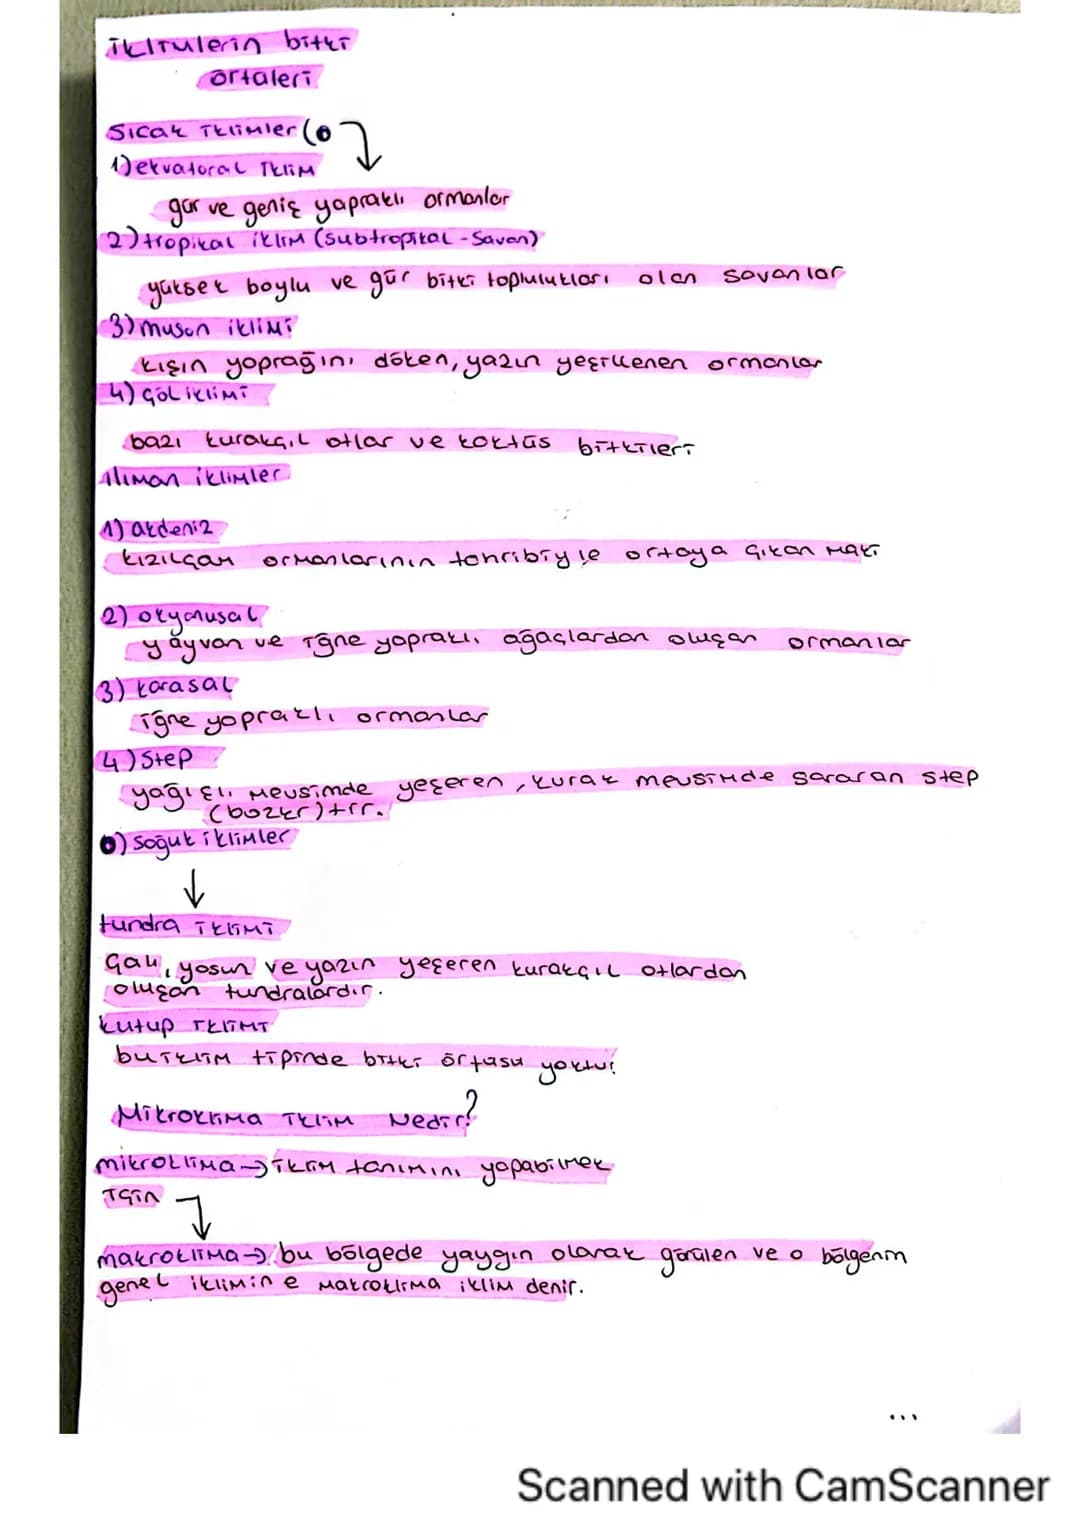 iklimlerin bitki
örtüleri
Sıcak iklimler (
1) ekvatoral iklim
gür ve geniş yapraklı ormanlar
2) tropikal iklim (subtropikal - Savan)
yüksek boylu ve gür bitki toplulukları olan savanlar
3) muson iklimi
kışın yaprağını döken, yazın yeşillenen ormanlar
4) çöl iklimi
bazı kurakçıl otlar ve kaktüs bitkileri
ılıman iklimler
1) akdeniz
kızılçam ormanlarının tahribiyle ortaya çıkan maki
2) okyanusal
yayvan ve iğne yapraklı ağaçlardan oluşan ormanlar
3) karasal
iğne yapraklı ormanlar
4) Step
yağışlı mevsimde yeşeren, kurak mevsimde sararan step
(bozkır)tır.
) Soğuk iklimler
tundra iklimi
Çalı, yosun ve yazın yeşeren kurakçıl otlardan
oluşan tundralardır.
kutup iklimi
bu iklim tipinde bitki örtüsü yoktur
Mikroklima iklim Nedir?
mikroklima → iklim tanımını yapabilmek
için
makroklima → bu bölgede yaygın olarak görülen ve o bölgenin
genel iklimine makroklima iklim denir.
...
Scanned with CamScanner